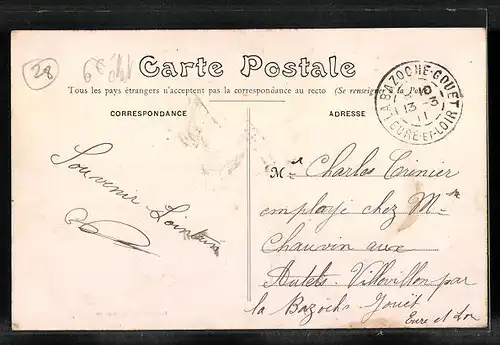 28
Carte Postale
Tous les pays étrangers n'acceptent pas la correspondance au recto (Se renseigner à la Poste)
LA BAZOCHE-GOUET
10
13 - 3
11
EURE-ET-LOIR
CORRESPONDANCE
ADRESSE
Souvenir Lointain
Charles
employé chez Mme
Chauvin aux
Autels Villevillon par
la Bazoche Gouët
Eure et Loir